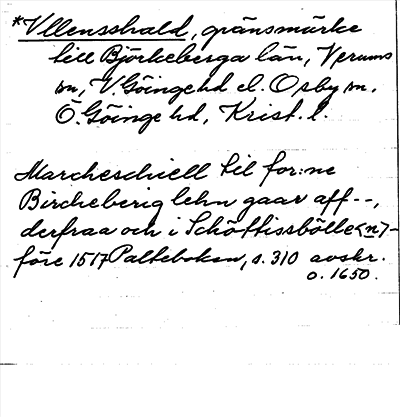 *Ullensshald, gränsmärke
till Björkeberga län, Verums
sn, V. Göinge hd el. Osby sn,
Ö. Göinge hd, Krist. l.
Marcheschiell til for:ne
Bircheberig lehn gaar aff--,
derfraa och i Schöttissbölle<n>-
före 1517 Palteboken, s. 310 avskr.
o. 1650.